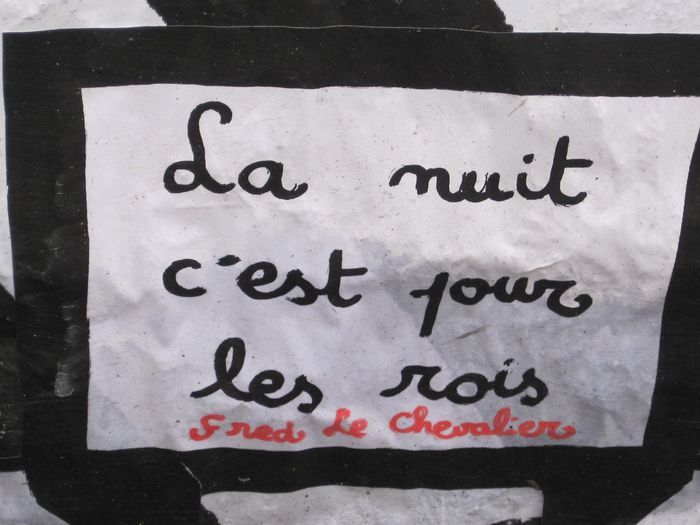 La nuit
c'est pour
les rois
Fred Le Chevalier